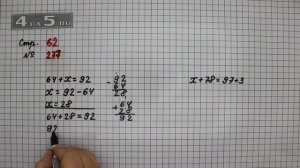 4DA5.RU
Стр. 62
№ 277
64+x=92
x = 92 - 64
x = 28
64+28=92
92
- 92
64
28
+ 64
28
92
x+78=97+3